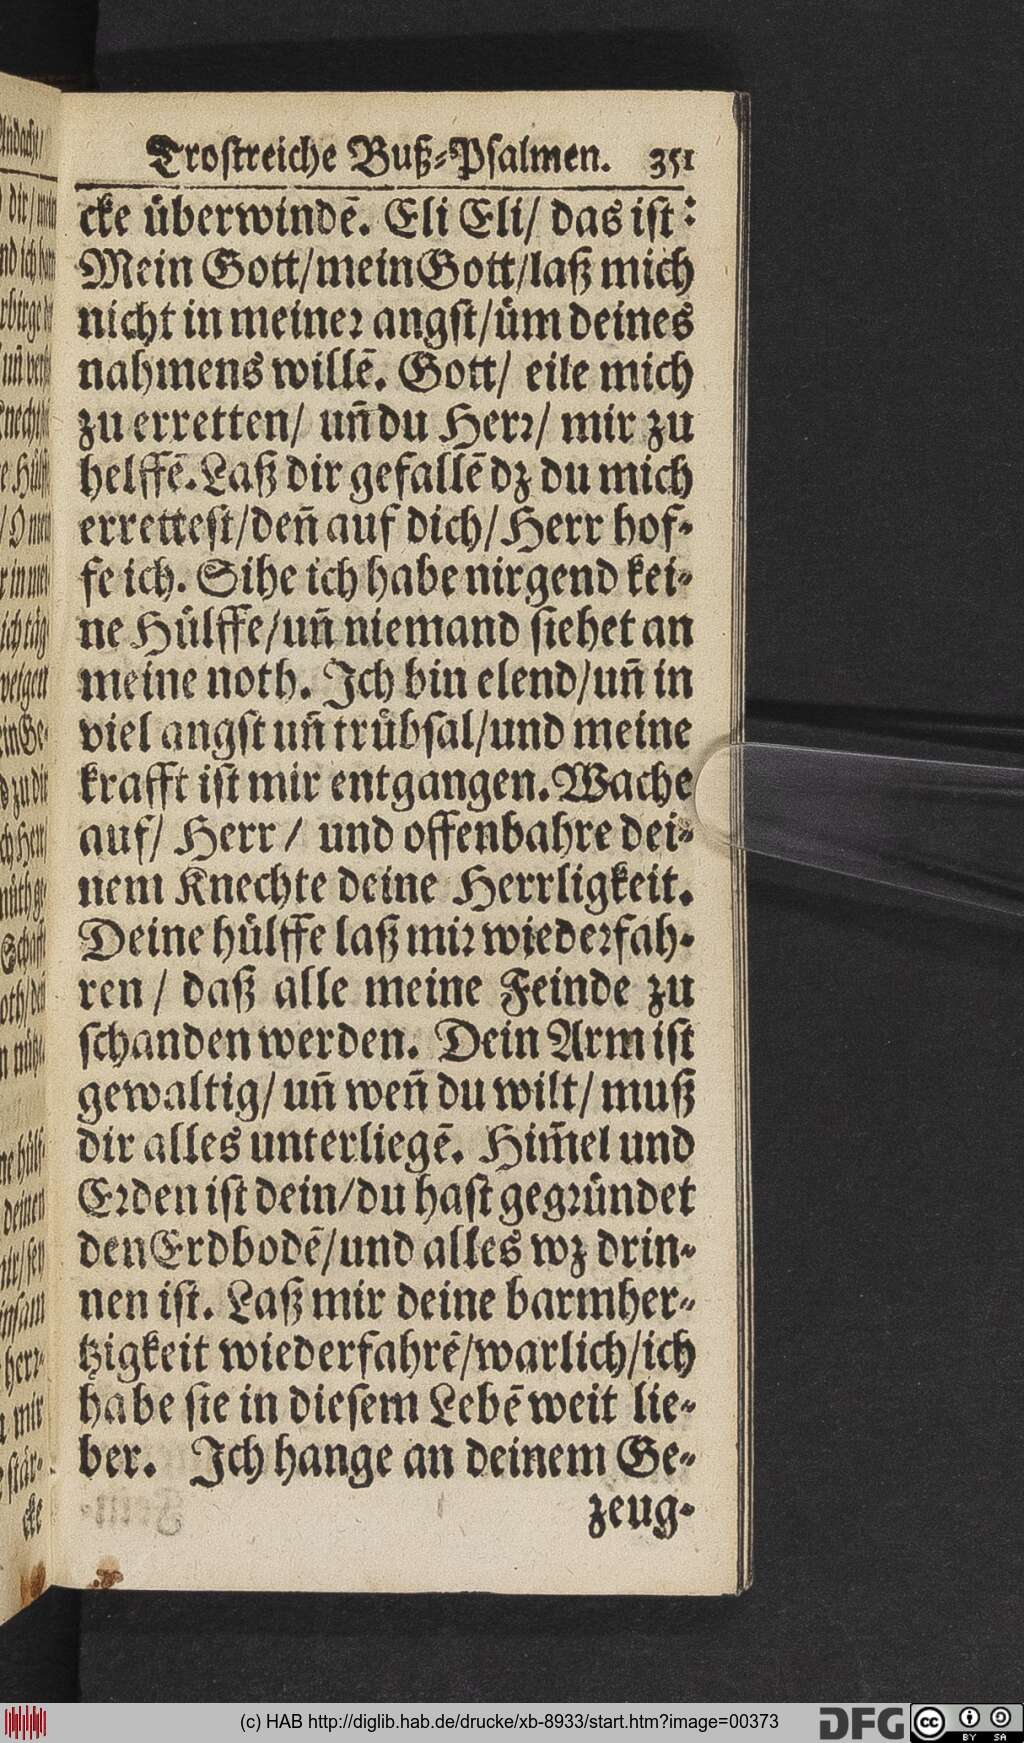 Trostreiche Buß-Psalmen. 351
cke überwindē. Eli Eli/ das ist:
Mein Gott/mein Gott/laß mich
nicht in meiner angst/üm deines
nahmens willē. Gott/ eile mich
zu erretten/ un̄ du Herr/ mir zu
helffē. Laß dir gefallē dz du mich
errettest/den̄ auf dich/ Herr hof-
fe ich. Sihe ich habe nirgend kei-
ne Hülffe/un̄ niemand siehet an
meine noth. Ich bin elend/un̄ in
viel angst un̄ trübsal/und meine
krafft ist mir entgangen. Wache
auf/ Herr / und offenbahre dei-
nem Knechte deine Herrligkeit.
Deine hülffe laß mir wiederfah-
ren / daß alle meine Feinde zu
schanden werden. Dein Arm ist
gewaltig/ un̄ wen̄ du wilt/ muß
dir alles unterliegē. Him̄el und
Erden ist dein/du hast gegründet
den Erdbodē/und alles wz drin-
nen ist. Laß mir deine barmher-
tzigkeit wiederfahrē/warlich/ich
habe sie in diesem Lebē weit lie-
ber. Ich hange an deinem Ge-
zeug-
(c) HAB http://diglib.hab.de/drucke/xb-8933/start.htm?image=00373
DFG
cc BY SA